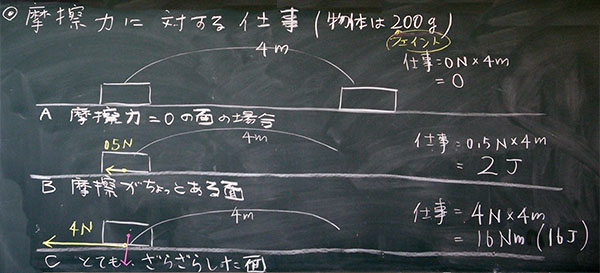 ◎ 摩擦力に対する仕事(物体は200g)
フェイント
4m
仕事=0N×4m
=0
A 摩擦力=0の面の場合
0.5N
4m
仕事=0.5N×4m
=2J
B 摩擦がちょっとある面
4N
4m
仕事=4N×4m
=16Nm(16J)
C とてもざらざらした面